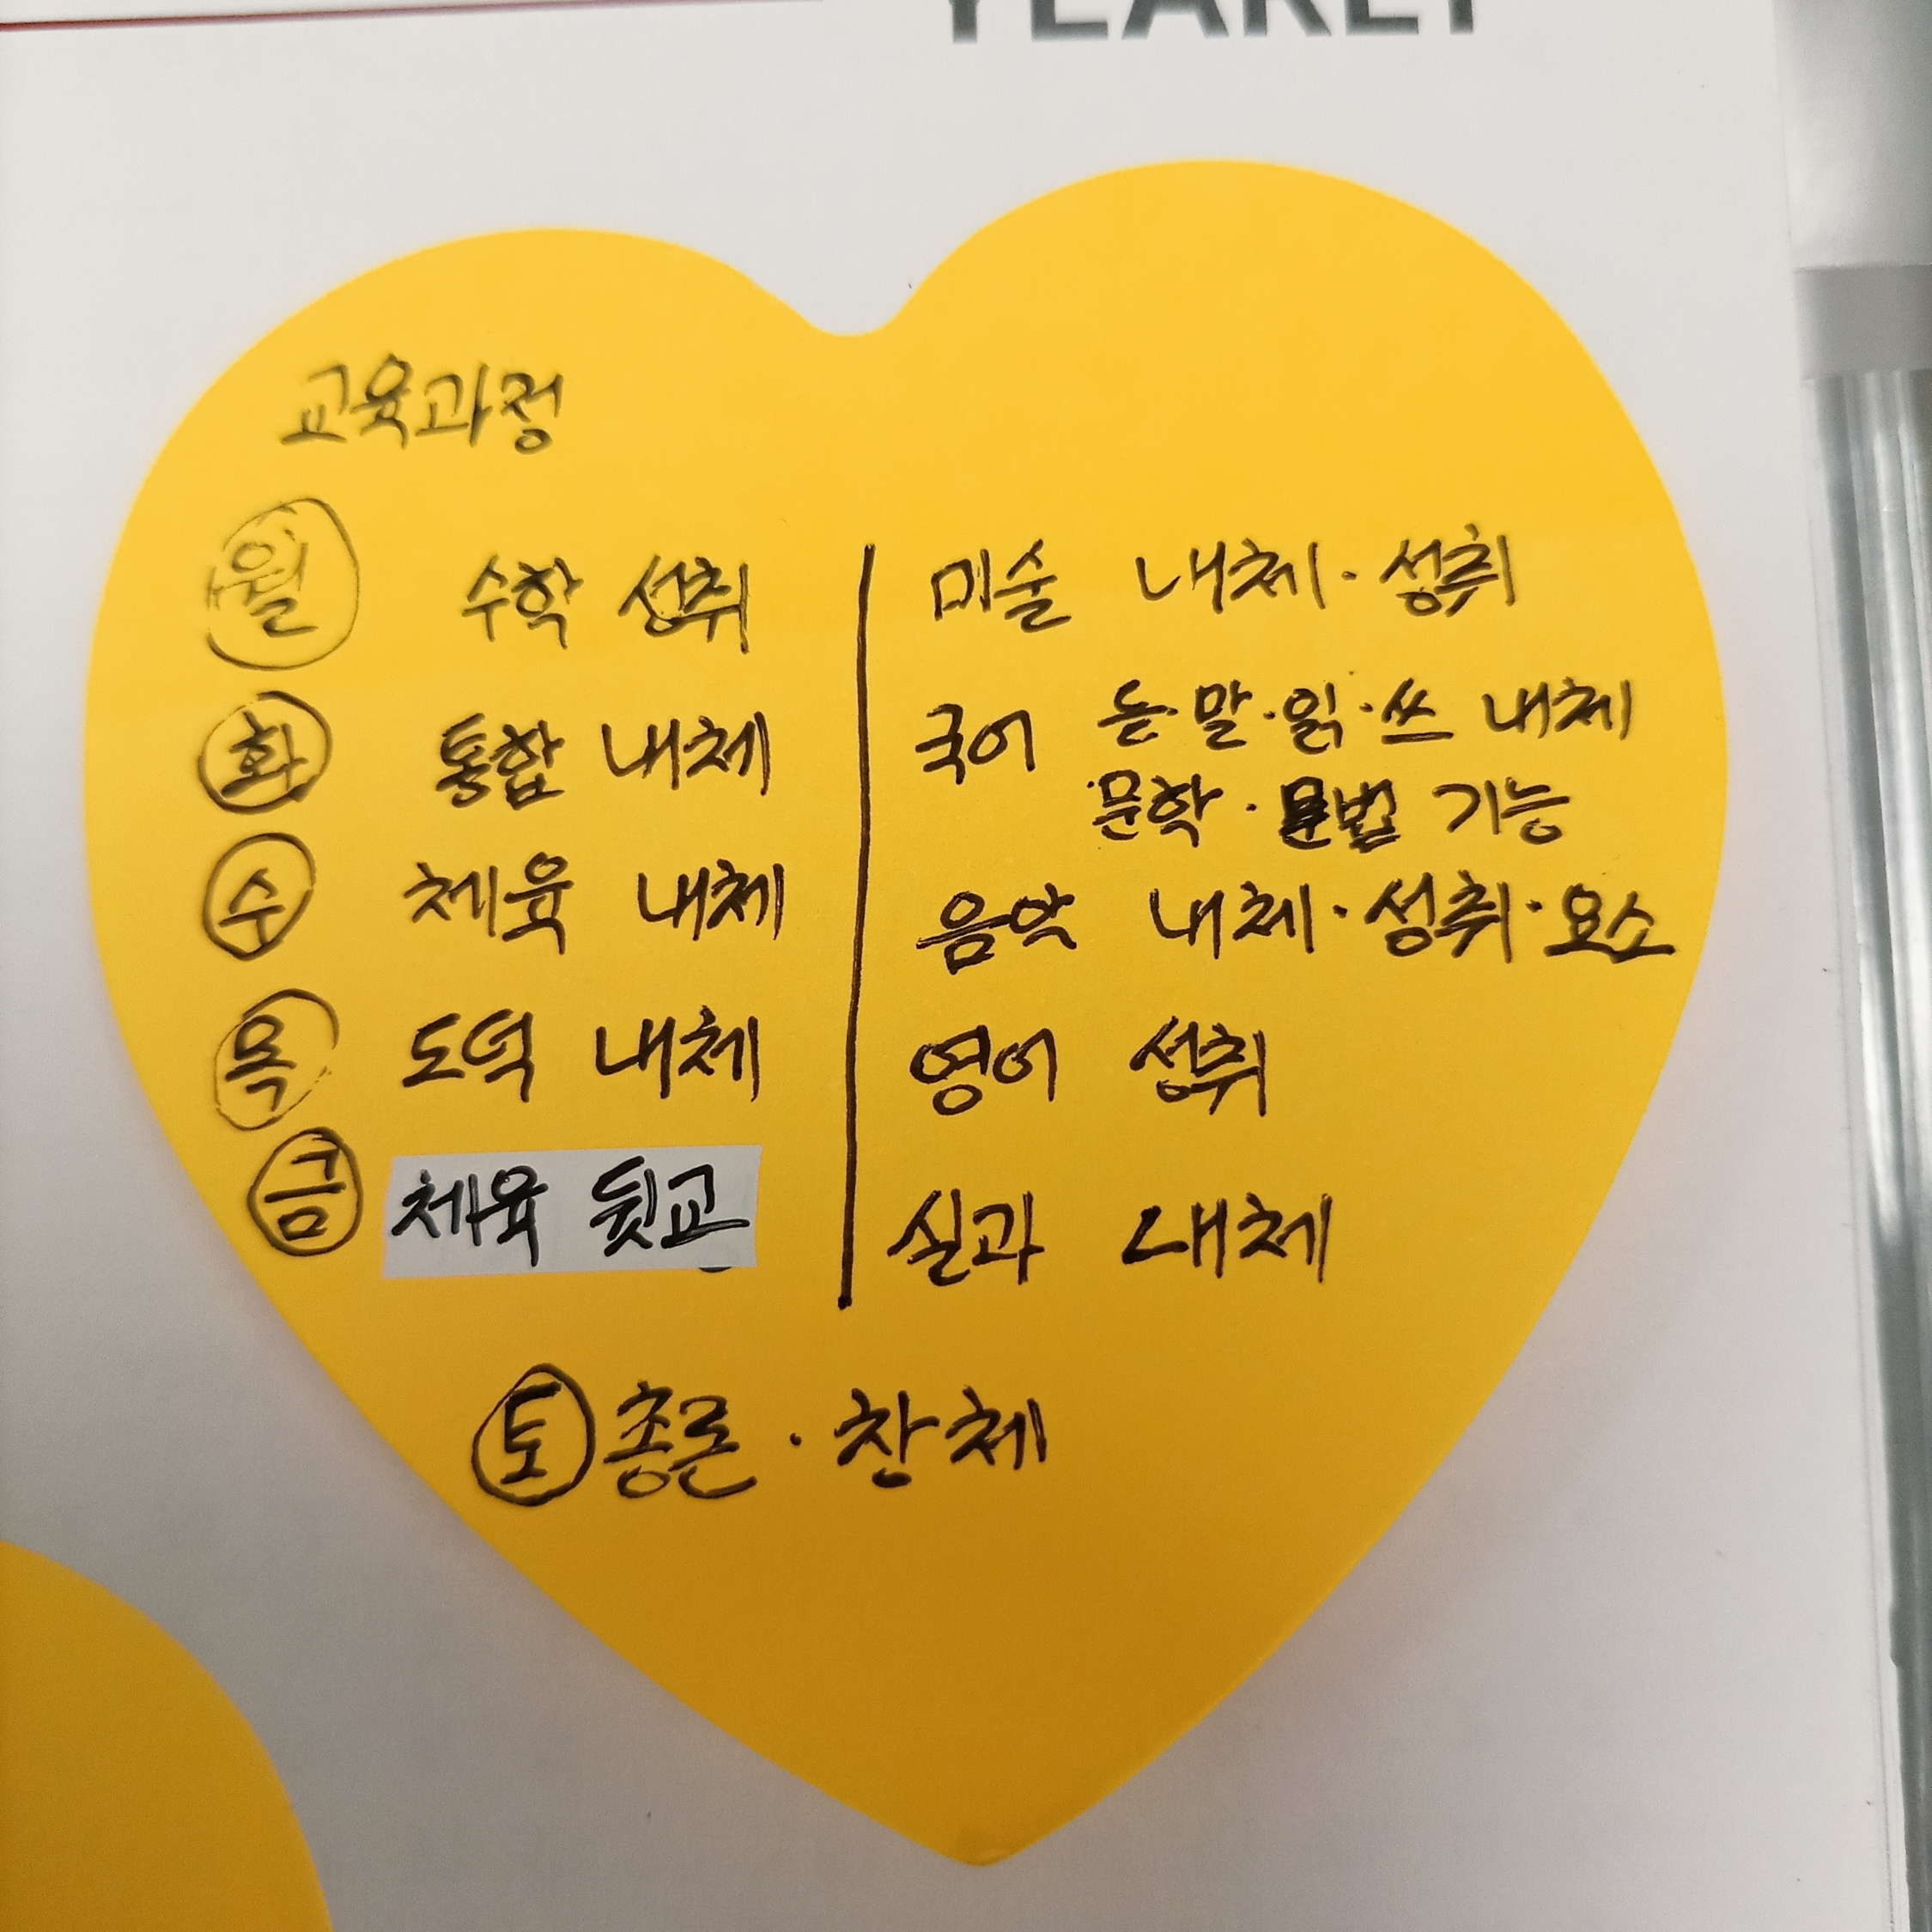 YEARLY
교육과정
월 수학 성취 미술 내체·성취
화 통합 내체 국어 듣·말·읽·쓰 내체
문학·문법 기능
수 체육 내체 음악 내체·성취·요소
목 도덕 내체 영어 성취
금 체육 뒷교 실과 내체
토 총론·창체